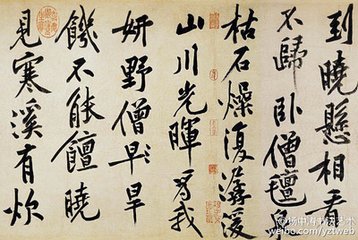 到曉懸相看
不歸卧僧氊泉
枯石燥復潺湲
山川光暉為我
妍野僧早旱
饑不能饘曉
見寒溪有炊
weibo.com/yztweb